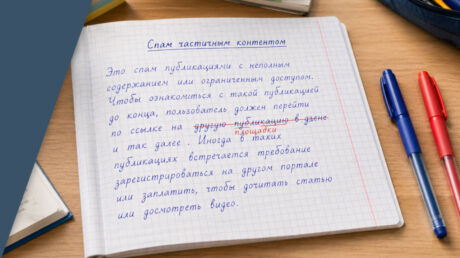 Спам частичным контентом
Это спам публикациями с неполным
содержанием или ограниченным доступом.
Чтобы ознакомиться с такой публикацией
до конца, пользователь должен перейти
по ссылке на другую публикацию в дзене
площадки
и так далее . Иногда в таких
публикациях встречается требование
зарегистрироваться на другом портале
или заплатить, чтобы дочитать статью
или досмотреть видео.